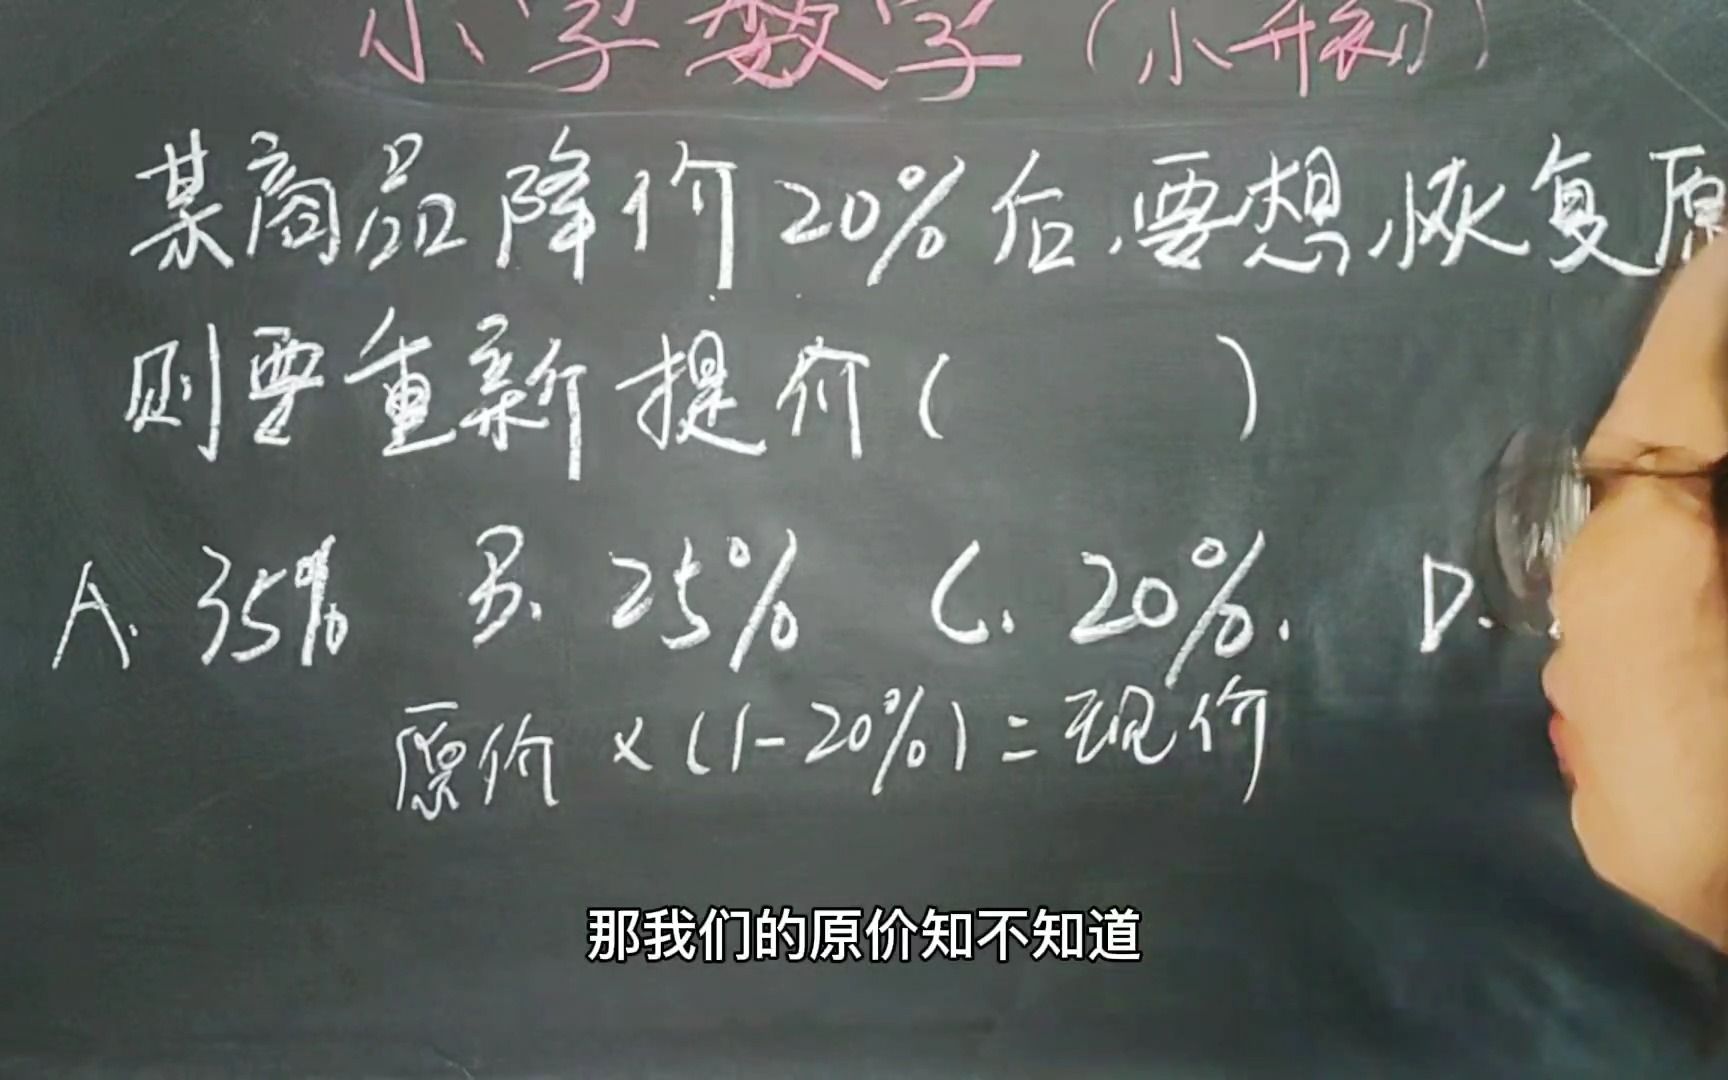 小学数学(小升初)
某商品降价20%后,要想恢复原
则要重新提价( )
A. 35% B. 25% C. 20%. D.
原价 × (1-20%) = 现价
那我们的原价知不知道